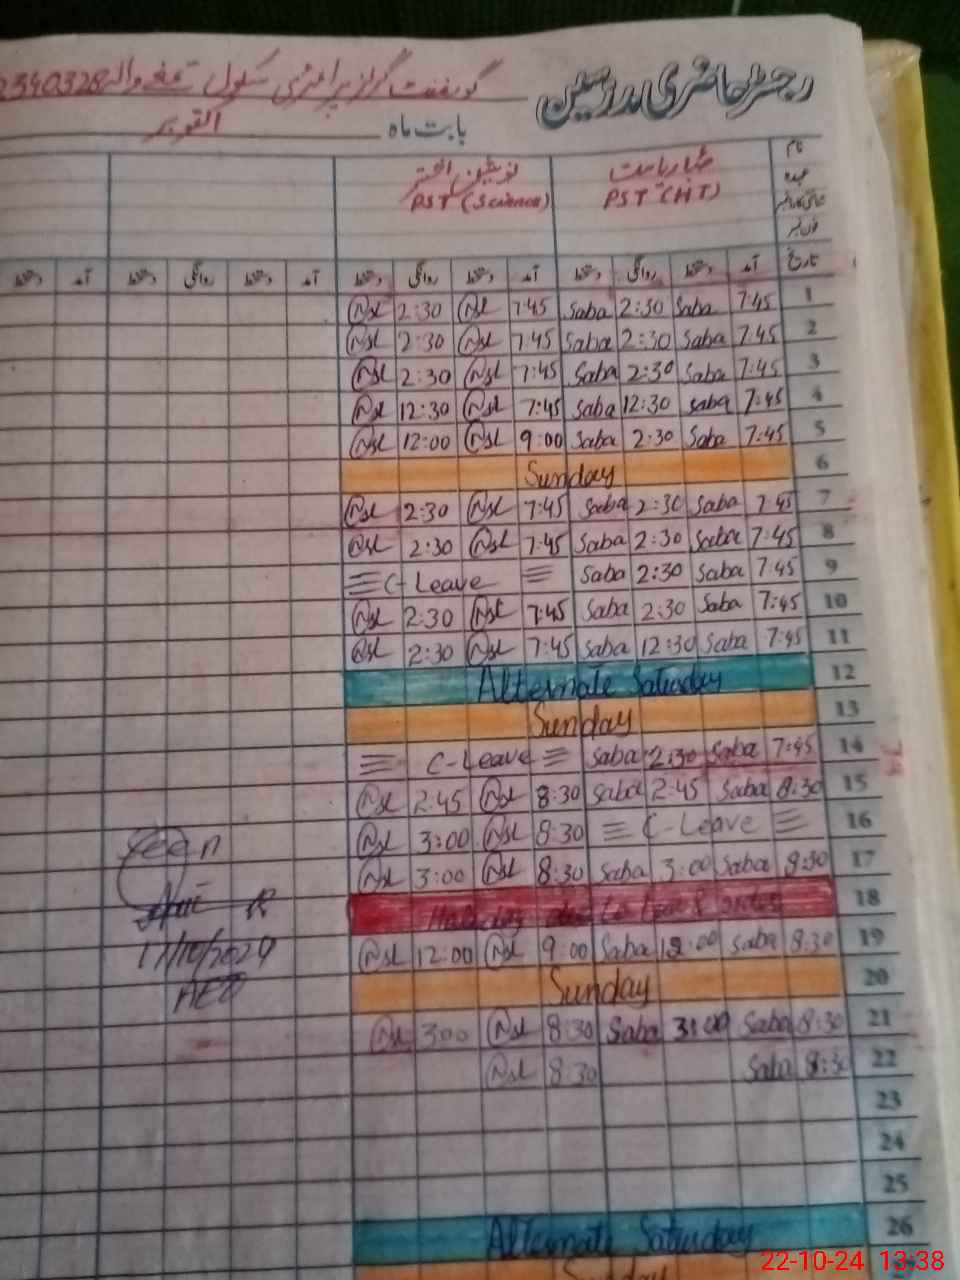 رجسٹر حاضری مدرسین گورنمنٹ گرلز پرائمری سکول
بابت ماہ اکتوبر
نام
عہدہ
PST (HT) PST (Science)
تاریخ آمد دستخط روانگی دستخط آمد دستخط روانگی دستخط آمد دستخط روانگی دستخط آمد دستخط
1 7:45 Saba 2:30 Saba 7:45 Nsl 2:30 Nsl
2 7:45 Saba 2:30 Saba 7:45 Nsl 2:30 Nsl
3 7:45 Saba 2:30 Saba 7:45 Nsl 2:30 Nsl
4 7:45 Saba 12:30 Saba 7:45 Nsl 12:30 Nsl
5 7:45 Saba 2:30 Saba 9:00 Nsl 12:00 Nsl
6 Sunday
7 7:45 Saba 2:30 Saba 7:45 Nsl 2:30 Nsl
8 7:45 Saba 2:30 Saba 7:45 Nsl 2:30 Nsl
9 7:45 Saba 2:30 Saba C-Leave
10 7:45 Saba 2:30 Saba 7:45 Nsl 2:30 Nsl
11 7:45 Saba 12:30 Saba 7:45 Nsl 2:30 Nsl
12 Alternate Saturday
13 Sunday
14 7:45 Saba 2:30 Saba C-Leave
15 8:30 Saba 2:45 Saba 8:30 Nsl 2:45 Nsl
16 C-Leave 8:30 Nsl 3:00 Nsl
17 8:30 Saba 3:00 Saba 8:30 Nsl 3:00 Nsl
Seen
18 Holiday due to
19 8:30 Saba 12:00 Saba 9:00 Nsl 12:00 Nsl
17/10/2024
20 Sunday
AEO
21 8:30 Saba 3:00 Saba 8:30 Nsl 3:00 Nsl
22 8:30 Saba 8:30 Nsl
23
24
25
26 Alternate Saturday
Sunday
22-10-24 13:38